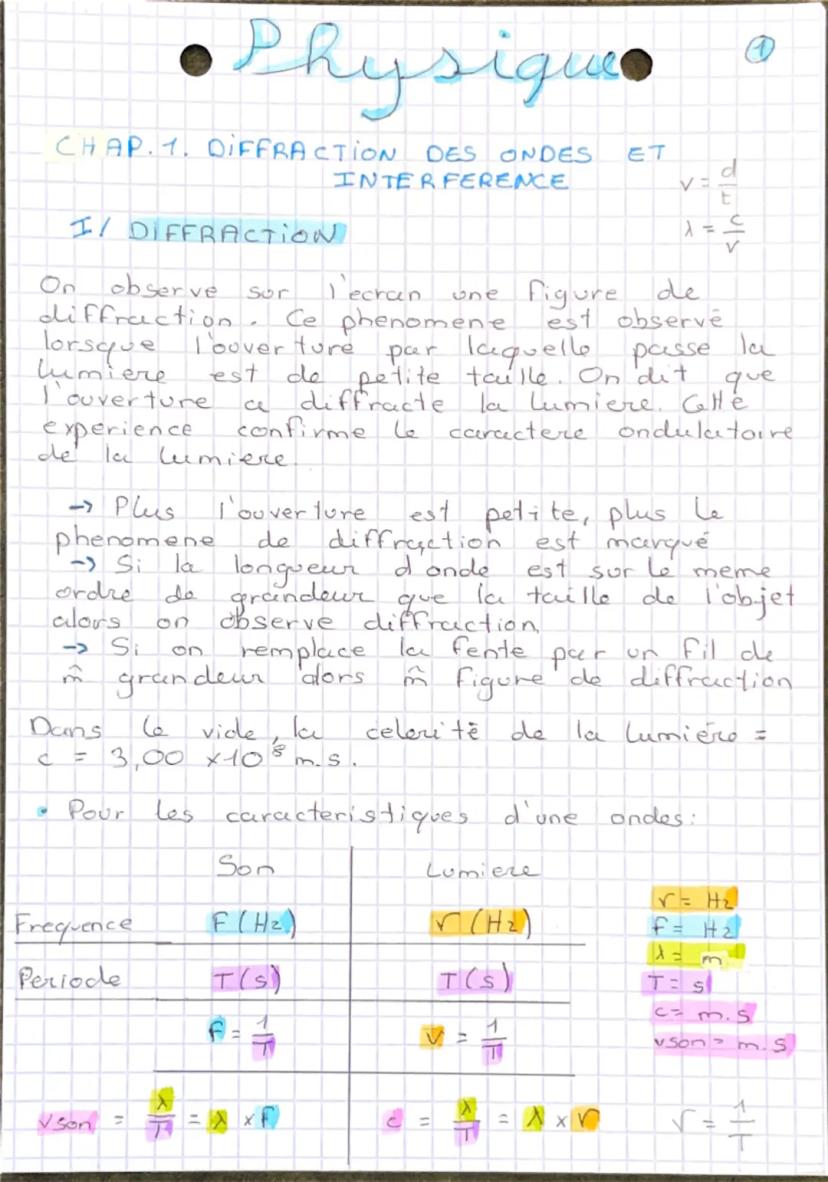 Physique
①
CHAP.1. DIFFRACTION DES ONDES ET
INTERFERENCE
v = d/t
λ = c/ν
I/ DIFFRACTION
On observe sur l'ecran une figure de
diffraction. Ce phenomene est observé
lorsque l'ouverture par laquelle passe la
lumiere est de petite taille. On dit que
l'ouverture a diffracte la lumiere. Cette
experience confirme le caractere ondulatoire
de la lumiere.
-> Plus l'ouverture est petite, plus le
phenomene de diffraction est marqué
-> Si la longueur d'onde est sur le meme
ordre de grandeur que la taille de l'objet
alors on observe diffraction.
-> Si on remplace la fente par un fil de
m̂ grandeur alors m̂ figure de diffraction
Dans le vide, la celerité de la lumiére =
c = 3,00 x10⁸ m.s.
• Pour les caracteristiques d'une ondes:
Son Lumiere
Frequence F(Hz) ν(Hz)
Periode T(s) T(s)
F = 1/T ν = 1/T
vson = λ/T = λ x F c = λ/T = λ x ν
ν = Hz
f = Hz
λ = m
T = s
c = m.s
vson = m.s
ν = 1/T